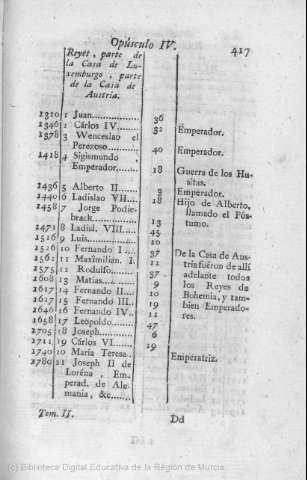 Opúsculo IV. 417
Reyes, parte de
la Casa de Lu-
xemburgo, parte
de la Casa de
Austria.
1310 1 Juan...... 36
1346 2 Cárlos IV..... 32 Emperador.
1378 3 Wenceslao el
Perezoso..... 40 Emperador.
1418 4 Sigismundo,
Emperador.... 18 Guerra de los Hu-
sitas.
1436 5 Alberto II.... 3 Emperador.
1440 6 Ladislao VII.... 18 Hijo de Alberto,
1458 7 Jorge Podie- llamado el Pós-
brack..... 13 tumo.
1471 8 Ladisl. VIII.... 45
1516 9 Luis..... 10
1526 10 Fernando I.... 37 De la Casa de Aus-
1562 11 Maximilian. I. 12 tria fuéron de allí
1575 12 Rodulfo..... 37 adelante todos
1608 13 Matias..... 9 los Reyes de
1617 14 Fernando II.... 10 Bohemia, y tam-
1617 15 Fernando III. 19 bien Emperado-
1646 16 Fernando IV.... 11 res.
1658 17 Leopoldo..... 47
1705 18 Joseph..... 6
1711 19 Cárlos VI..... 29
1740 20 María Teresa.. Emperatriz.
1780 21 Joseph II de
Loréna, Em-
perad. de Ale-
mania, &c....
Tom. II. Dd
(c) Biblioteca Digital Educativa de la Región de Murcia